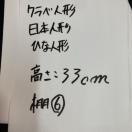 クラベ人形
日本人形
ひな人形
高さ:33cm
棚⑥